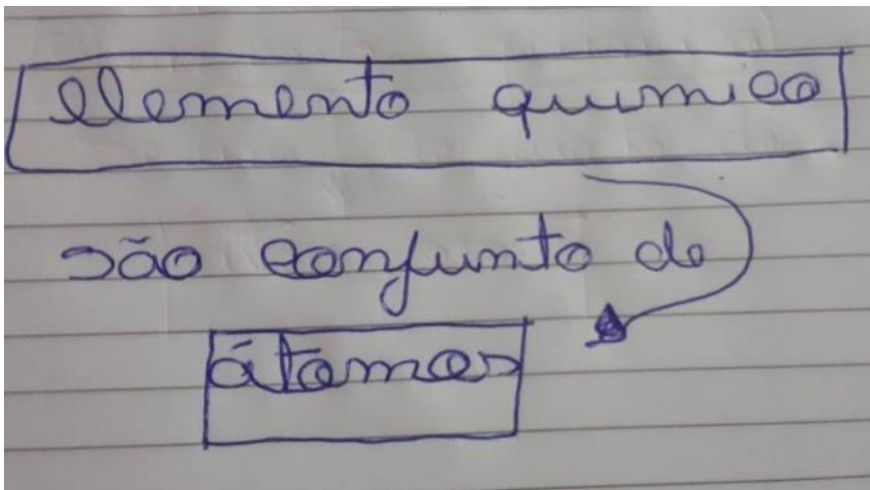 elemento quimico
são conjunto de
átomos